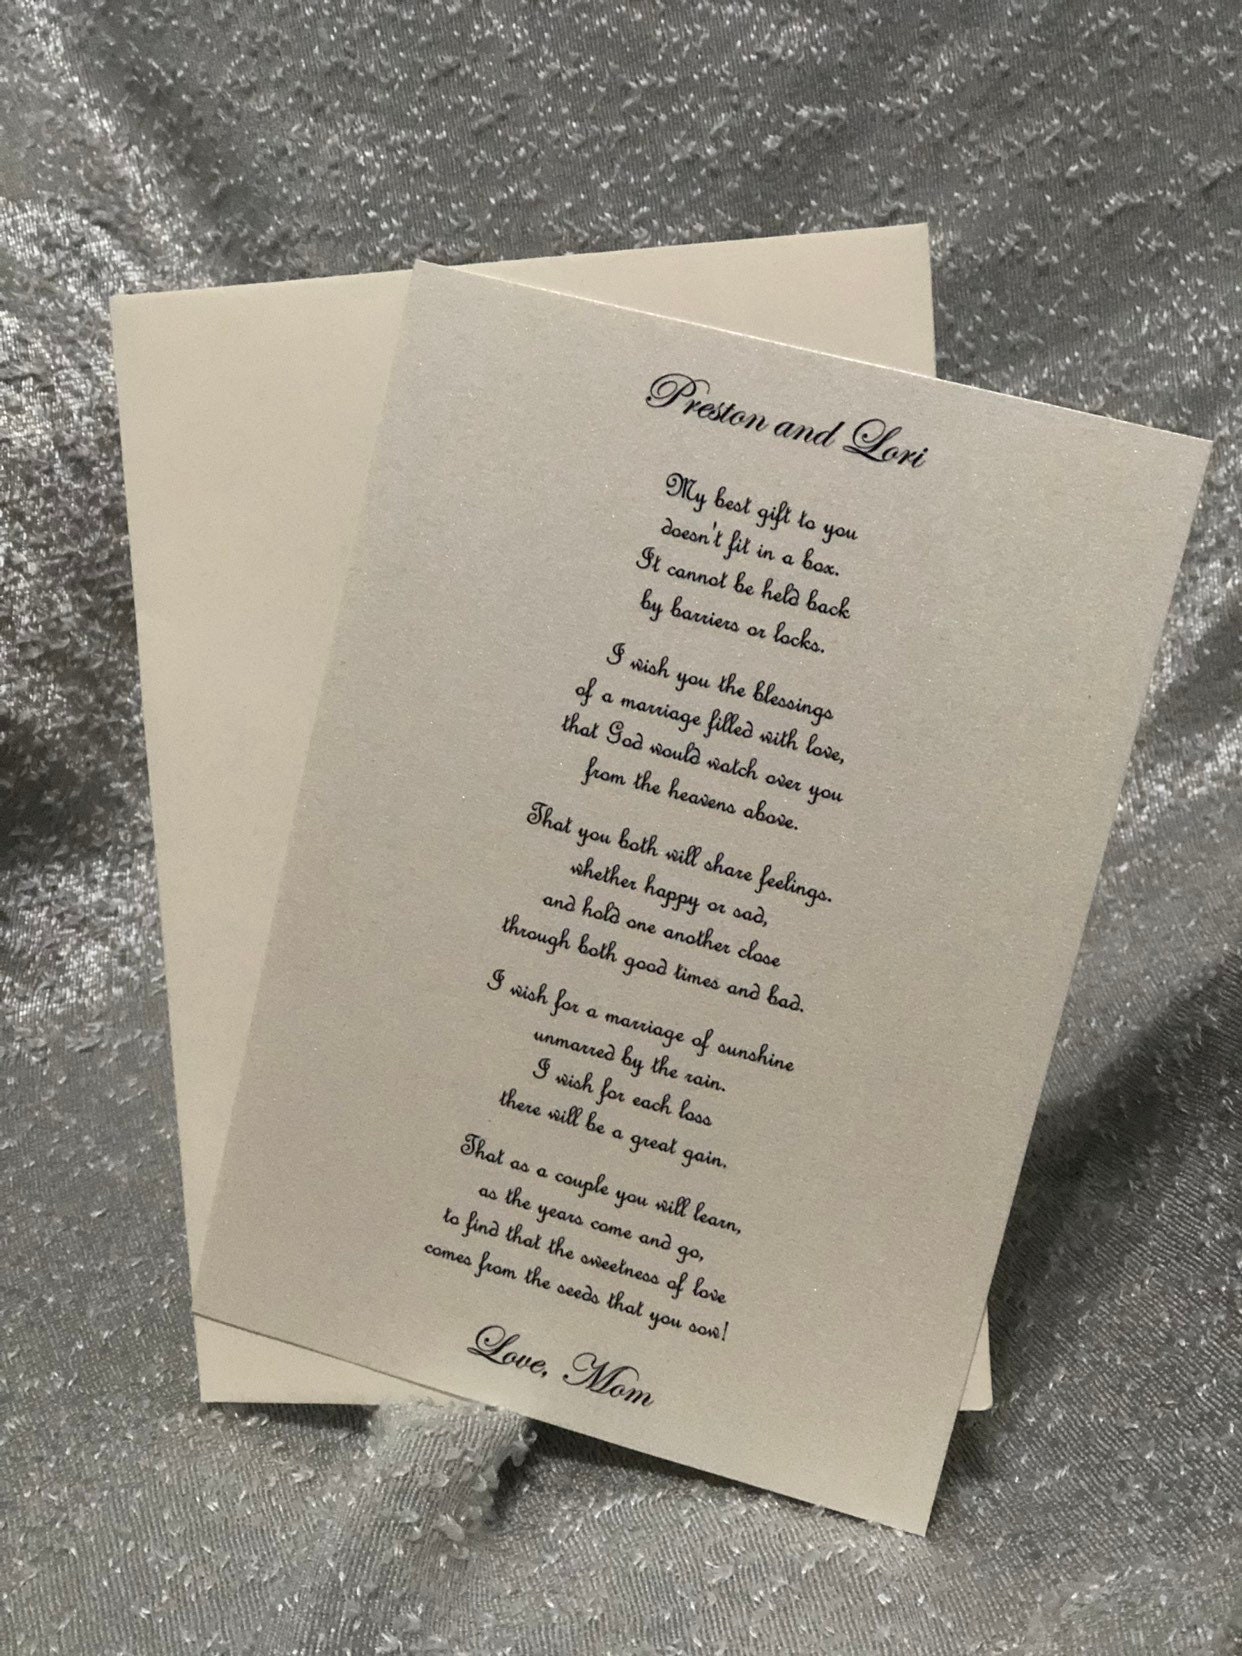 Preston and Lori
My best gift to you
doesn't fit in a box.
It cannot be held back
by barriers or locks.
I wish you the blessings
of a marriage filled with love,
that God would watch over you
from the heavens above.
That you both will share feelings.
whether happy or sad,
and hold one another close
through both good times and bad.
I wish for a marriage of sunshine
unmarred by the rain.
I wish for each loss
there will be a great gain.
That as a couple you will learn,
as the years come and go,
to find that the sweetness of love
comes from the seeds that you sow!
Love, Mom